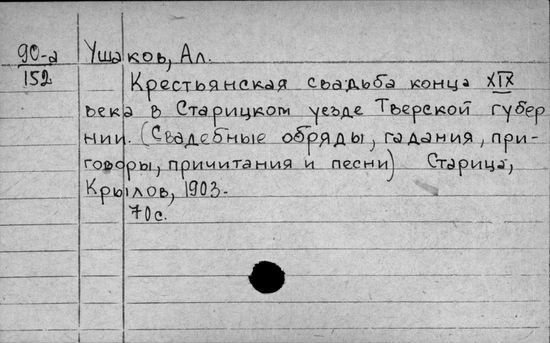 90-а Ушаков, Ал.
152 Крестьянская свадьба конца XIX
века в Старицком уезде Тверской губер
нии. (Свадебные обряды, гадания, при-
говоры, причитания и песни) Старица,
Крылов, 1903.
70с.